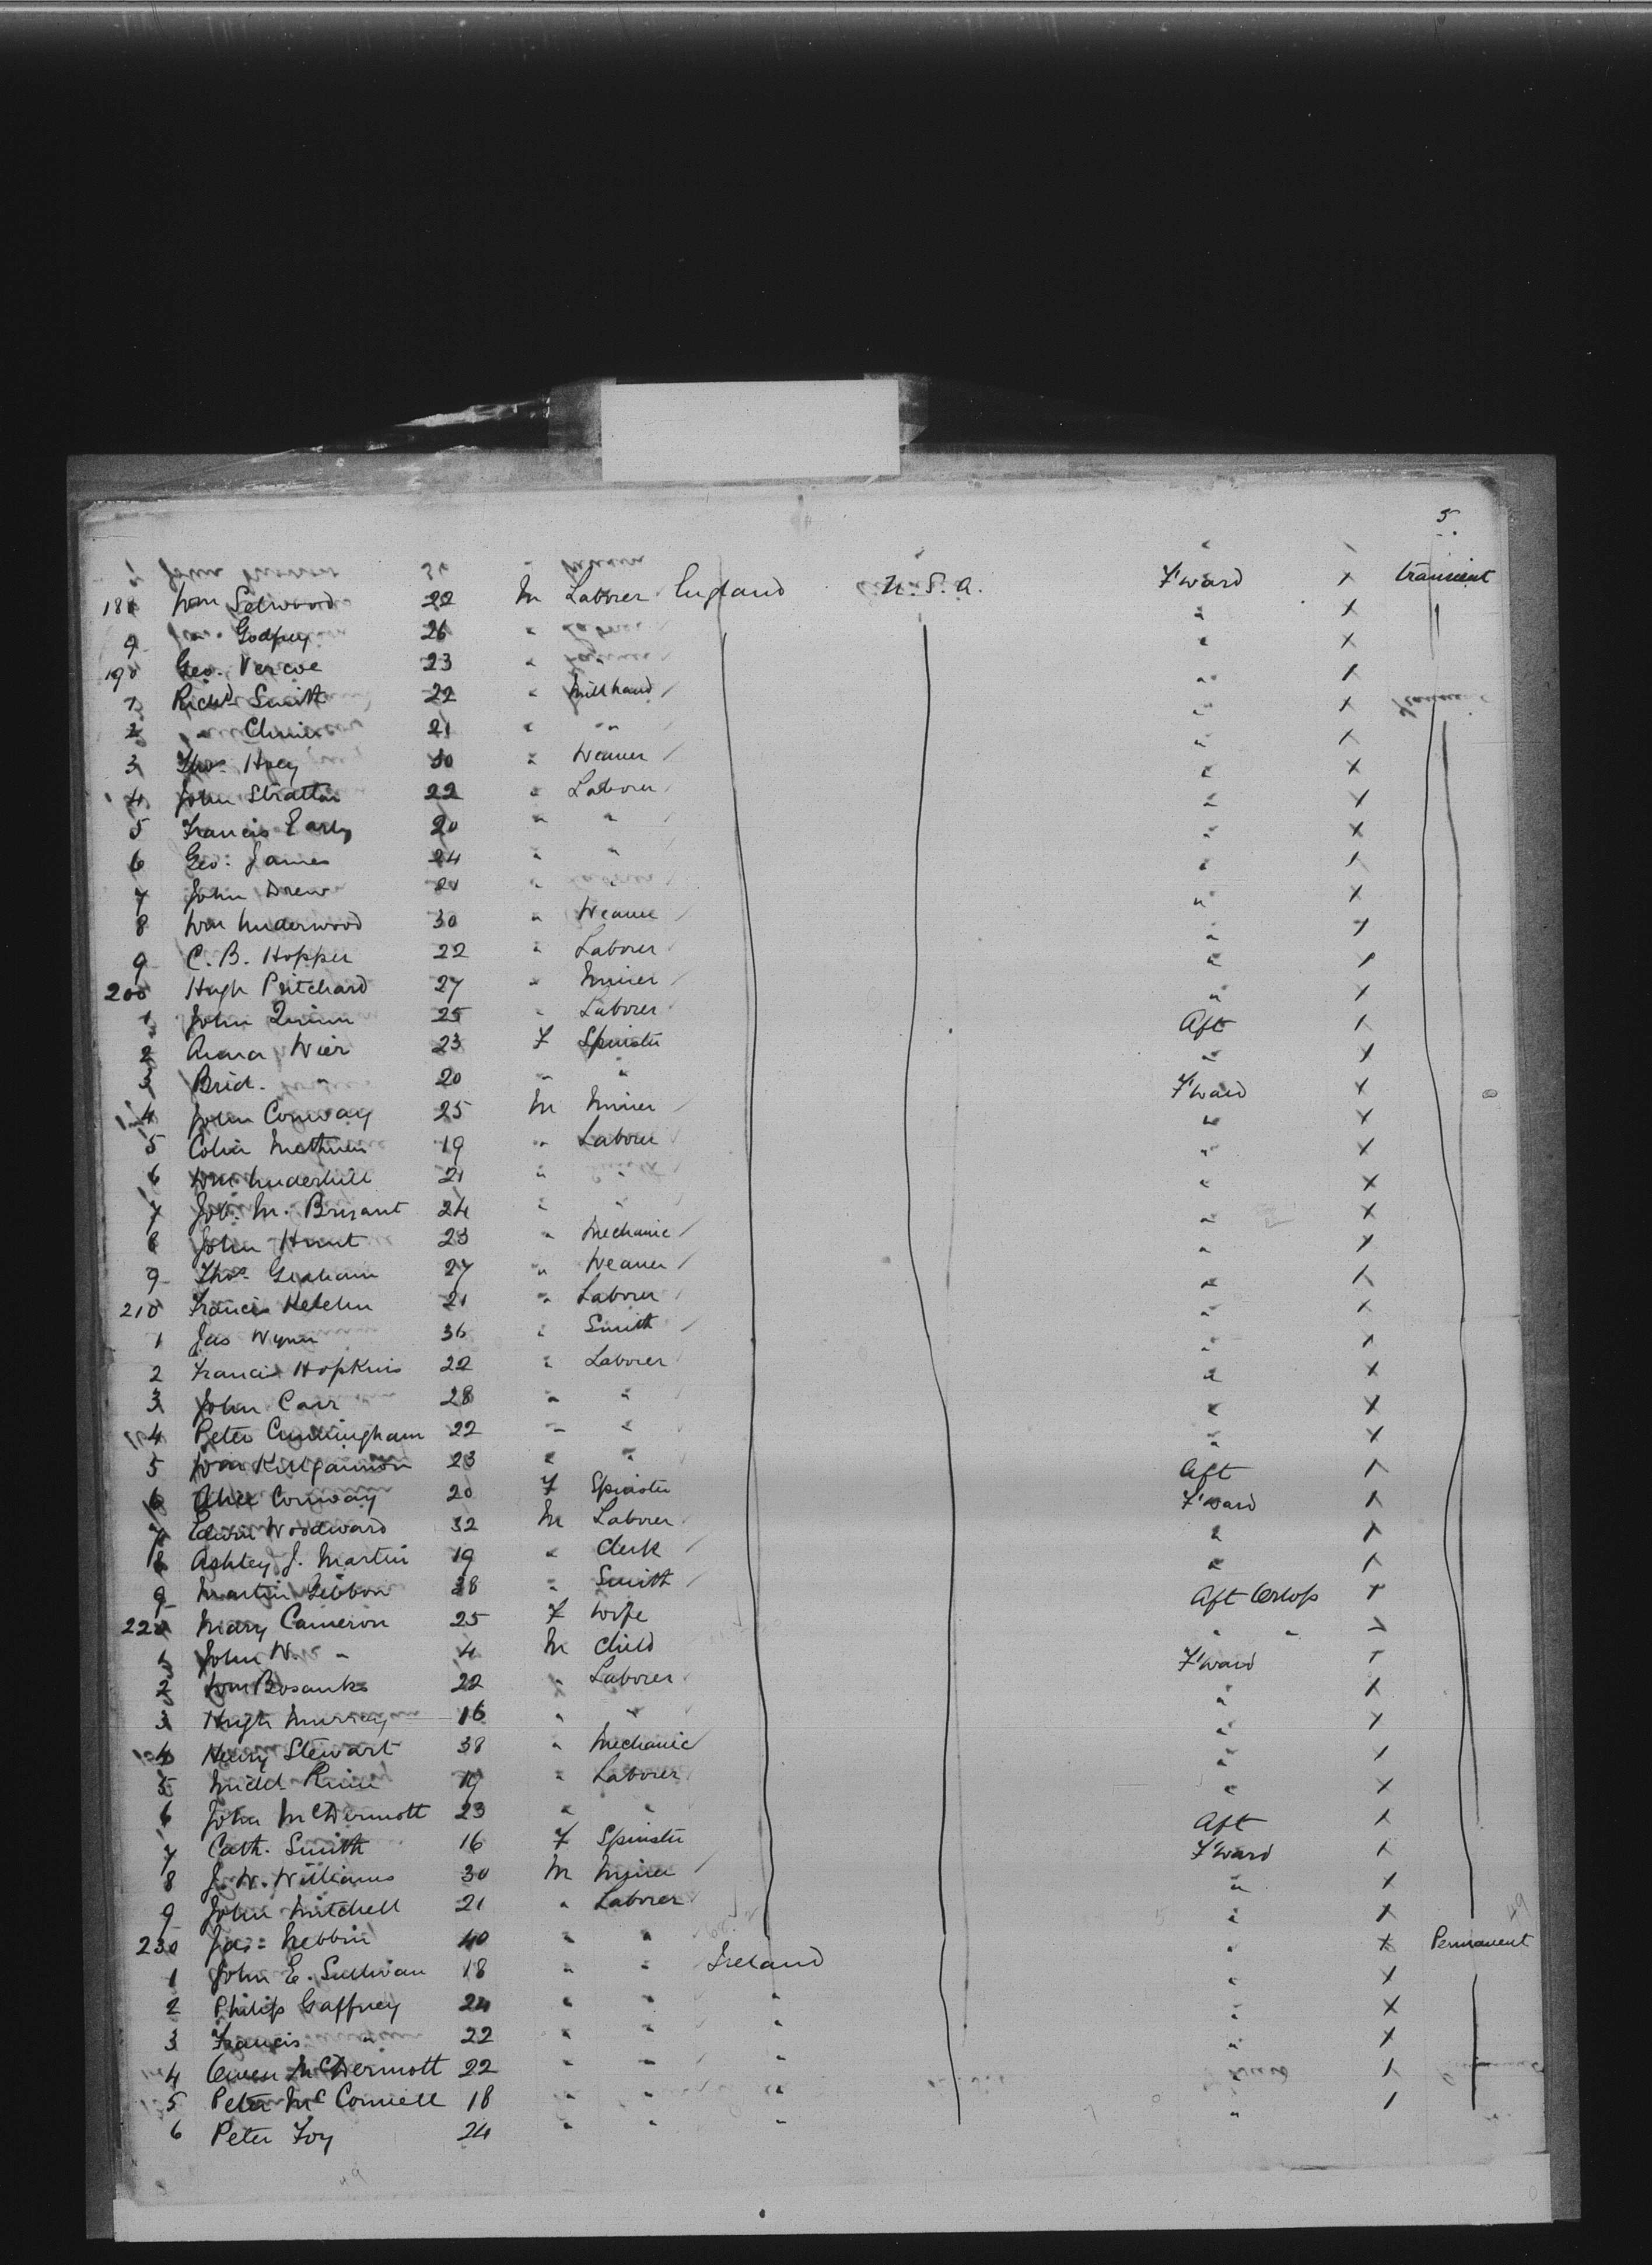 5.
188 Wm Selwood 22 M Laborer England U.S.A. F'ward X transient
9 Godfrey 26 " " X
190 Geo. Vercoe 23 " " " X
1 Richd Smith 22 " Millhand " X
2 " 21 " " " X
3 Thos Hoey 30 " Weaver " X
4 John Stratton 22 " Laborer " X
5 Francis Early 20 " " " X
6 Geo. James 24 " " " X
7 John Drew 21 " " X
8 Wm Underwood 30 " Weaver " X
9 C. B. Hopper 22 " Laborer " X
200 Hugh Pritchard 27 " Miner " X
1 John Quinn 25 " Laborer " X
2 Anna Wier 23 F Spinster Aft X
3 Brid. " 20 " " " X
4 John Conway 25 M Miner F'ward X
5 Colin Methuen 19 " Laborer " X
6 Wm Underhill 21 " " " X
7 M. 24 " " " X
8 John Hunt 23 " Mechanic " X
9 Thos Graham 27 " Weaver " X
210 Francis 21 " Laborer " X
1 Jas Wynn 36 " Smith " X
2 Francis Hopkins 22 " Laborer " X
3 John Carr 28 " " " X
4 Peter Cunningham 22 " " " X
5 Wm 23 " " " X
6 Alice Conway 20 F Spinster Aft X
7 Edwin Woodward 32 M Laborer F'ward X
8 Ashley J. Martin 19 " Clerk " X
9 Martin Gibbon 38 " Smith " X
220 Mary Cameron 25 F Wife Aft Orlop X
1 John W. " 4 M Child " " X
2 Wm Bosanko 22 " Laborer F'ward X
3 Hugh Murray 16 " " " X
4 Henry Stewart 38 " Mechanic " X
5 19 " Laborer " X
6 John McDermott 23 " " " X
7 Cath. Smith 16 F Spinster Aft X
8 J. W. Williams 30 M Miner F'ward X
9 John Mitchell 21 " Laborer " X
230 Jas 40 " " " X
1 John E. Sullivan 18 " " Ireland " X Permanent
2 Philip Gaffney 24 " " " " X
3 Francis " 22 " " " " X
4 Owen McDermott 22 " " " " X
5 Peter McConnell 18 " " " " X
6 Peter Foy 24 " " " " X